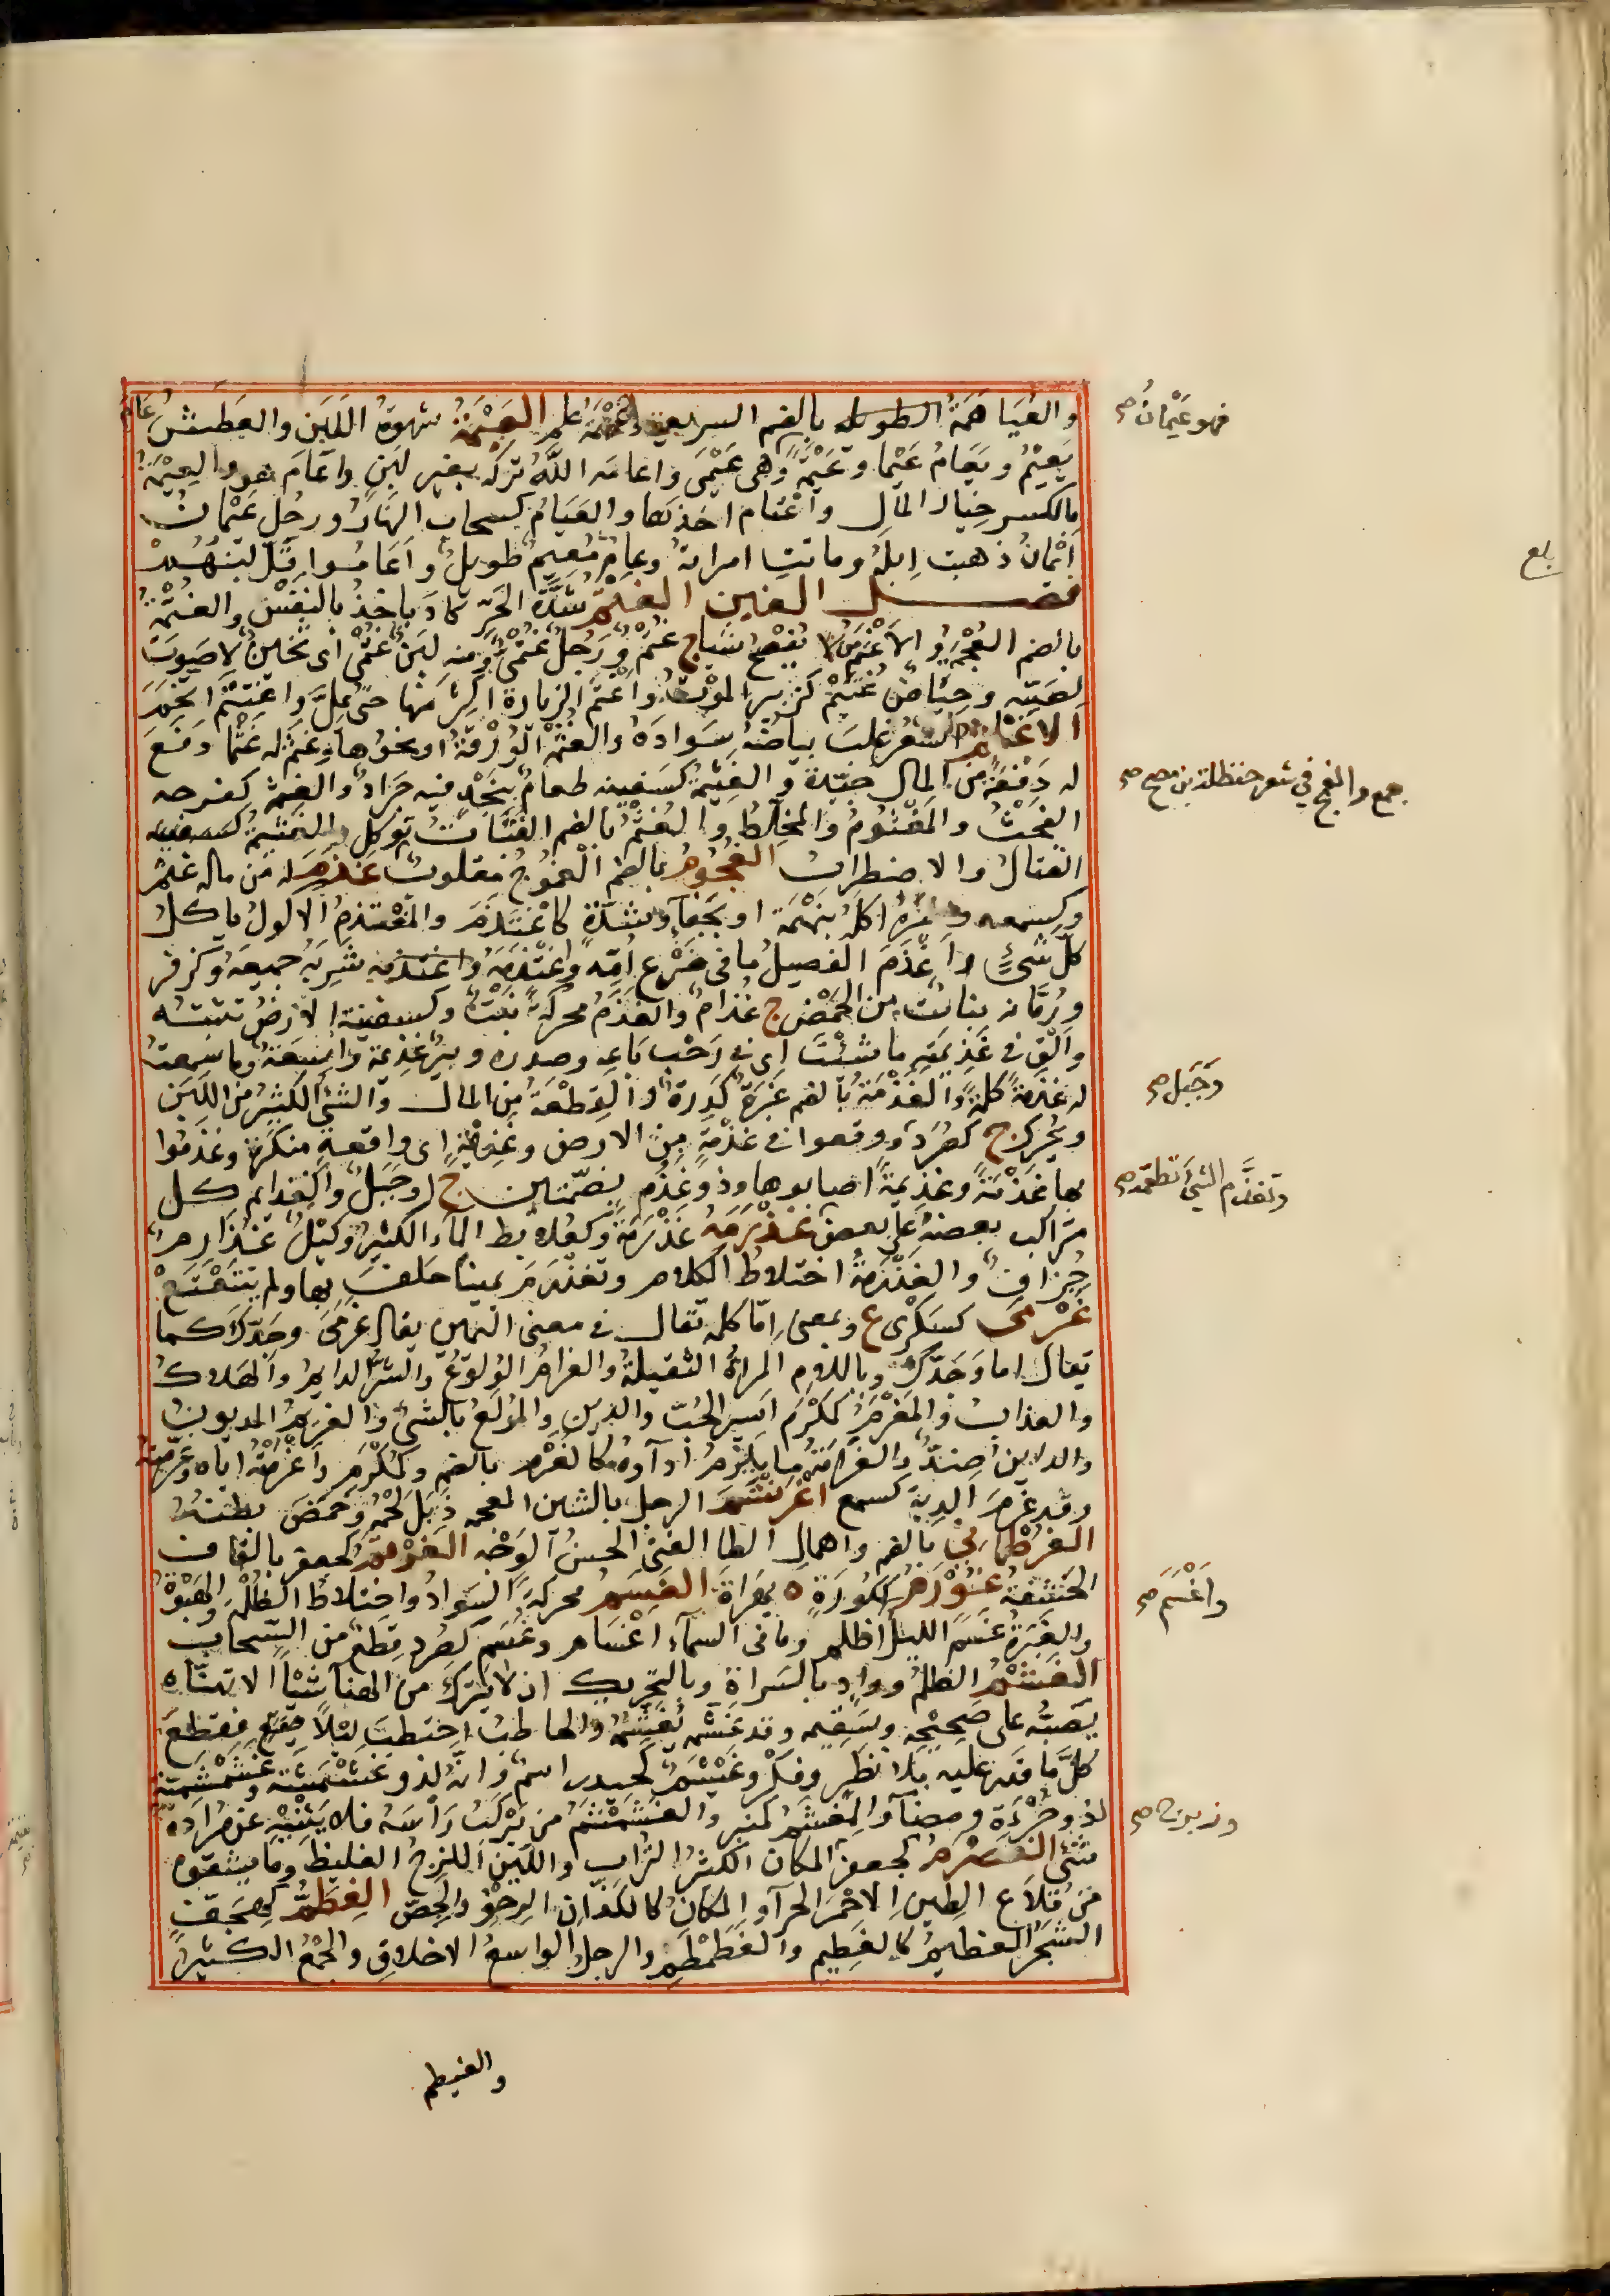 والعُيَاهَمَةُ الطويله بالضم السريعة وعَيْهَمَةُ علم العَيْمَةُ شهوَةُ اللَّبَنِ والعَطَشُ عَامَ
يَعِيْمُ ويَعَامُ عَيْمًا وعَيْمَةً وهى عَيْمَى واعامَه اللّٰهُ تركه بغير لبَنٍ واعَامَ هو والعِيْمَةُ
بالكسر خِيَار المَالِ واعْتَام اخذها والعَيَامُ كسحاب النهَارُ ورجُل عَيْمَانُ
اَيْمانُ ذهبت اِبلُهُ وماتت امراتهُ وعامٌ مُعِيمٌ طويلٌ واعَامُوا قَلَّ لبنُهُمْ
فصل الغين الغَتْمُ شدّة الحَرِّ كاد ياخذُ بالنفَسِ والغُتْمَةُ
بالضم العُجْمَةُ والاَغْتَمُ مَن لا يُفْصِحُ شياج غُتْمٌ ورَجُلٌ غُتْمِىٌّ ومنه لبنٌ غُتْمِىٌّ اى ثخينٌ لا صَوتَ
لصَبِّه وحِيَاضُ غُتَيْمٍ كزبير الموتُ واَغْتَمَ الزيارة اكثر منها حتى يُمَلَّ واغْتَتَمَ اتخَمَ
الاَغْثَمُ الشعرُ غلبَ بياضُهُ سَوادَهُ والغُثْمَةُ الوُرْقَةُ او نحوُها وغَثَمَ له غَثْمًا دفعَ
له دَفْعَةً من المال جيّدة والغَثيْمَةُ كسَفينه طعامٌ يتخذ فيه جَرادٌ والغَثِمَةُ كفرحه
الفِحْثُ والمَغْثُومُ والمخلِّطُ والغُثْمُ بالضم القُثَّاتُ توكل والغَثِيْمَةُ كسفينه
القتالُ والاضطرابُ الغُجُومُ بالضم الغُمُوجُ مقلوبٌ غَذَمَ له من ماله غثمَ
وكسمعه وضربه اكلهُ بنَهْمَة او بجفآءٍ وشدّةٍ كاغْتَذَمَ والمُغْتَذِمُ الاكولُ ياكل
كلّ شىءٍ واغْذَمَ الفصيلُ ما فى ضَرْع اُمّه واغْتَذَمَهُ شربَهُ جميعَهُ وكزفر
ورُمّانه نباتٌ من الحَمْضِ ج غُذامٌ والغَذَمُ محركةً نَبْتٌ وكسفينة الارضُ تنبتُه
واَلقِ فى غَذِيمَتِه ما شئْتَ اى فى رَحْبِ بَاعِه وصدره وبيرٌ غَذِيمَةٌ واسِعَةٌ وما سَمعتُ
له غَذْمةً كلمةً والغُذْمَةُ بالضم غُبْرَةٌ كَدِرةٌ والقِطْعَةُ من المال والشئُ الكثيْرُ من اللّبَن
ويُحرك ج كصُرَد ووقعوا فى غُذْمَةٍ من الارض وغَذيمَةٍ اى واقعةٍ منكرة وغذموا
بها غُذْمَةً وغَذِيمَةً اصابوها وذو غُذُم بضمّتين ج او جَبلٌ والغَذائم كل
متراكب بعضهُ على بعض غَذْرَمَهُ غَذْرَمَةً وكعُلابط المآءُ الكثيْرُ وكَيْلٌ غُذَارِمٌ
جُزافٌ والغَذْرَمَةُ اختلاطُ الكلام وتغذْرَمَ يميناً حلفَ بها ولم يتتعْتَعْ
غَرْمَى كسَكْرَى ع وبمعنى اِمّا كلمةٌ تقال فى معنى اليمين يقال غَرْمَى وجَدّكَ كما
تقال اما وَجَدِّكَ وباللام المراةُ الثقيلةُ والغرامُ الوُلوعُ والشرُّ الدايمُ والهلاكُ
والعذابُ والمُغْرَمُ كمُكْرَمٍ اسيرُ الحُبّ والدين والمُولَعُ بالشىء والغريمُ المديونُ
والداينُ ضِدٌّ والغرامَةُ ما يلزمُ اَدآؤهُ كالغُرْم بالضم وكمُكْرَم واغْرَمْتُه اياه وغَرّمتُه
وقد غَرِمَ الدية كسمع اغْرَنْشَمَ الرجل بالشين المعجمه ذَبَلَ لحْمُه وخَمُصَ بطنهُ
الغُرْطُمَانىُّ بالضم واهمال الطا الفتى الحسنُ الوَجْه الغَرْقَمُ كجعفر بالقاف
الحَشَفةُ غَنْزَمُ ككَوْرَةٍ ه بهَرَاةَ الغَسَمُ محركةً السَوادُ واختلاطُ الظُلْمَةِ والهَبْوَةُ
والغَبَرَةُ غَسَمَ الليلُ اظلم وما فى السمآءِ اغْسَام وغُسَمٌ كصُرد قِطَعٌ من السَّحاب
الغَشْمُ الظلمُ ووادٍ بالسَراةِ وبالتحريك ان لا يَترُك من الهنا شيْاً الا تهنّاه
يَصُبُّه على صَحِيْحِه وسَقِيمه وقد غَشَمَه يَغْشِمُه والحاطبُ احتطبَ ليْلاً فقطعَ
كلَّ ما قَدَر عليه بلا نَظَرٍ وفِكْرٍ وغَيْشَمٌ كحيدر اسمٌ وانّه لذو غَشَمْشَمَةٍ وغَشَمْشَمِيّةٍ
لذو جُرْءَةٍ ومضآءٍ والمِغْشَمُ كمنبر والغَشَمْشَمُ من يَرْكَبُ رَأْسَهُ فلا يَثْنيْهِ عن مُرادِهِ
شئٌ الغَضْرَمُ كجعفر المكانُ الكثيْرُ التُراب واللَّيّن اللزِجُ الغليظُ وما يشقوق
من قُلَاعِ الطينِ الاحْمَرِ الحرّ او المكانُ كالكذّانِ الرِخْوُ والجصّ الغِطَمُّ كهِجَفٍّ
البَحْرُ العظيمُ كالغَطيم والغَطَمْطَم والرجلُ الواسعُ الاخلاقِ والجَمْعُ الكثيْرُ
والغيطم
فهو عَيْمَانُ صح
بلغ
جمع والفتح فى شعر حنظلة بن مصبح صح
وَجَبل صح
وتغذَّم الشئ تطعمه صح
واَغْسَمَ صح
وزبون صح